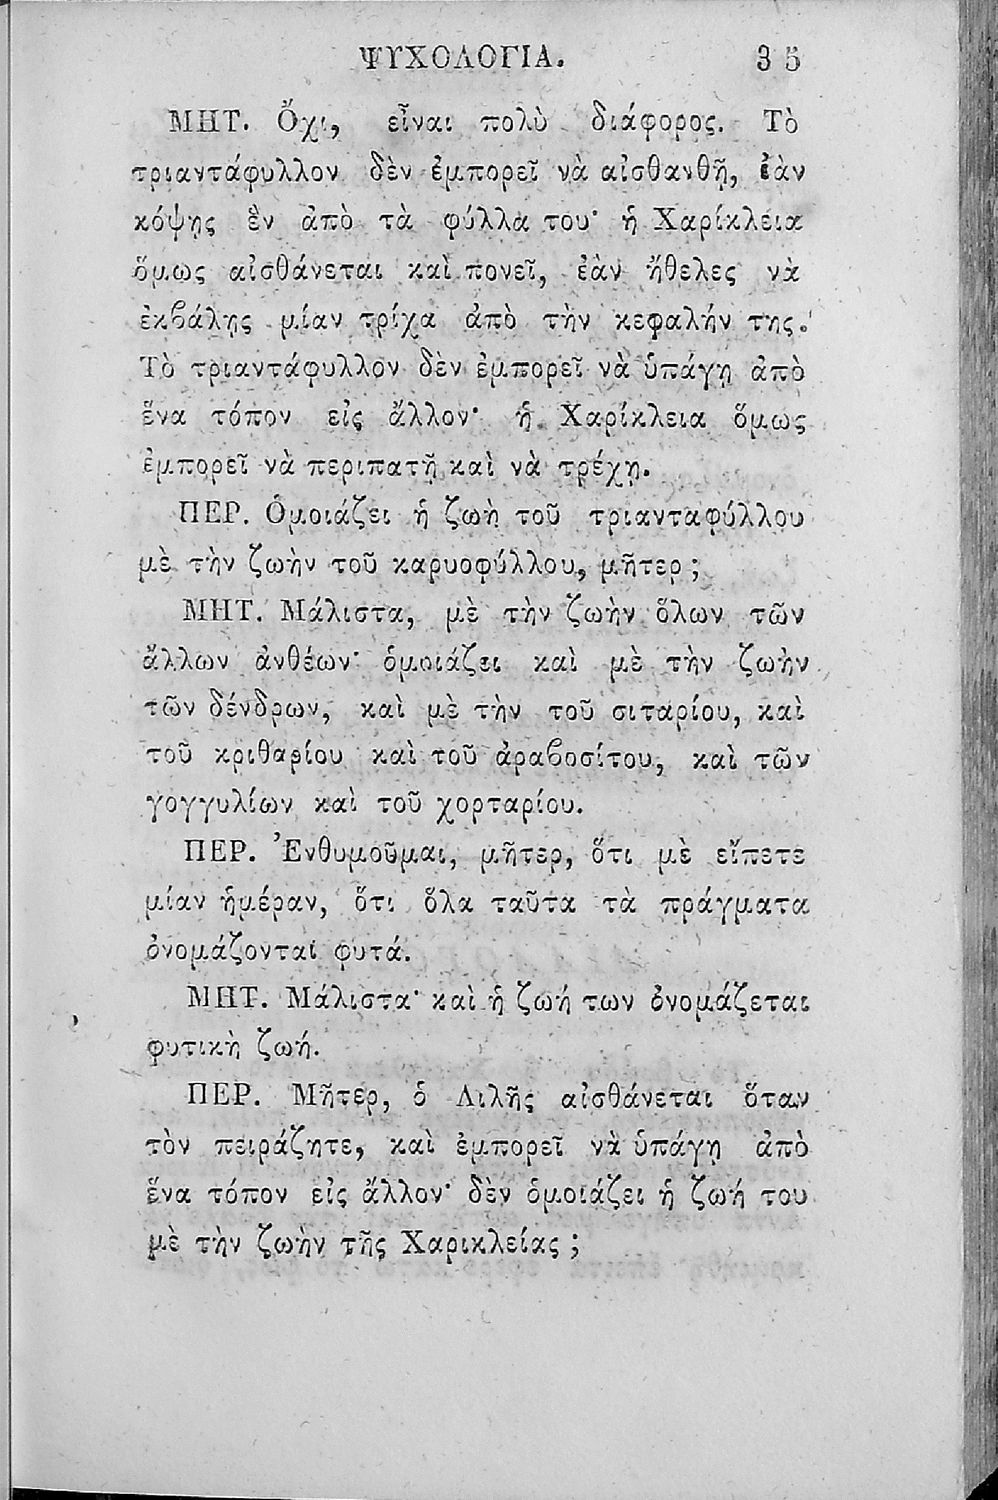 ΨΥΧΟΛΟΓΙΑ. 35
ΜΗΤ. Ὄχι, εἶναι πολὺ διάφορος. Τὸ
τριαντάφυλλον δὲν ἐμπορεῖ νὰ αἰσθανθῇ, ἐὰν
κόψῃς ἓν ἀπὸ τὰ φύλλα του· ἡ Χαρίκλεια
ὅμως αἰσθάνεται καὶ πονεῖ, ἐὰν ἤθελες νὰ
ἐκβάλῃς μίαν τρίχα ἀπὸ τὴν κεφαλήν της.
Τὸ τριαντάφυλλον δὲν ἐμπορεῖ νὰ ὑπάγῃ ἀπὸ
ἕνα τόπον εἰς ἄλλον· ἡ Χαρίκλεια ὅμως
ἐμπορεῖ νὰ περιπατῇ καὶ νὰ τρέχῃ.
ΠΕΡ. Ὁμοιάζει ἡ ζωὴ τοῦ τριανταφύλλου
μὲ τὴν ζωὴν τοῦ καρυοφύλλου, μῆτερ;
ΜΗΤ. Μάλιστα, μὲ τὴν ζωὴν ὅλων τῶν
ἄλλων ἀνθέων· ὁμοιάζει καὶ μὲ τὴν ζωὴν
τῶν δένδρων, καὶ μὲ τὴν τοῦ σιταρίου, καὶ
τοῦ κριθαρίου καὶ τοῦ ἀραβοσίτου, καὶ τῶν
γογγυλίων καὶ τοῦ χορταρίου.
ΠΕΡ. Ἐνθυμοῦμαι, μῆτερ, ὅτι μὲ εἴπετε
μίαν ἡμέραν, ὅτι ὅλα ταῦτα τὰ πράγματα
ὀνομάζονται φυτά.
ΜΗΤ. Μάλιστα· καὶ ἡ ζωή των ὀνομάζεται
φυτικὴ ζωή.
ΠΕΡ. Μῆτερ, ὁ Λιλῆς αἰσθάνεται ὅταν
τὸν πειράζητε, καὶ ἐμπορεῖ νὰ ὑπάγῃ ἀπὸ
ἕνα τόπον εἰς ἄλλον· δὲν ὁμοιάζει ἡ ζωή του
μὲ τὴν ζωὴν τῆς Χαρικλείας;